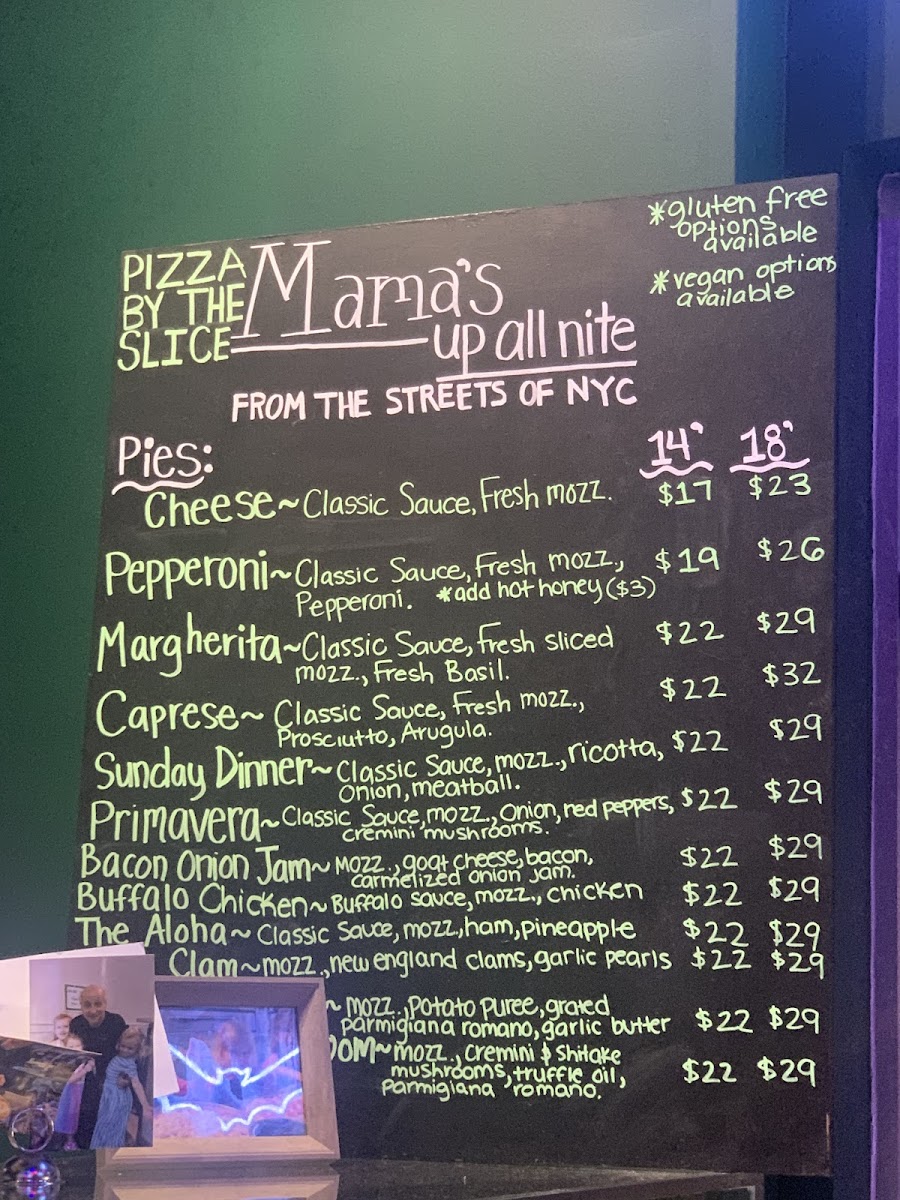 PIZZA BY THE SLICE
Mama's
up all nite
FROM THE STREETS OF NYC
*gluten free
options
available
*vegan options
available
Pies: 14" 18"
Cheese~Classic Sauce, Fresh mozz. $17 $23
Pepperoni~Classic Sauce, Fresh mozz., $19 $26
Pepperoni. *add hot honey ($3)
Margherita~Classic Sauce, fresh sliced $22 $29
mozz., Fresh Basil.
Caprese~ Classic Sauce, Fresh mozz., $22 $32
Prosciutto, Arugula.
Sunday Dinner~Classic Sauce, mozz., ricotta, $22 $29
Onion, meatball.
Primavera~Classic Sauce, mozz., Onion, red peppers, $22 $29
cremini mushrooms.
Bacon Onion Jam~Mozz., goat cheese, bacon, $22 $29
carmelized onion jam.
Buffalo Chicken~Buffalo sauce, mozz., chicken $22 $29
The Aloha~Classic Sauce, mozz, ham, pineapple $22 $29
Clam~mozz., new england clams, garlic pearls $22 $29
~ mozz., Potato Puree, grated
parmigiana romano, garlic butter $22 $29
OOM~mozz., Cremini & Shitake
mushrooms, truffle oil, $22 $29
Parmigiana romano.